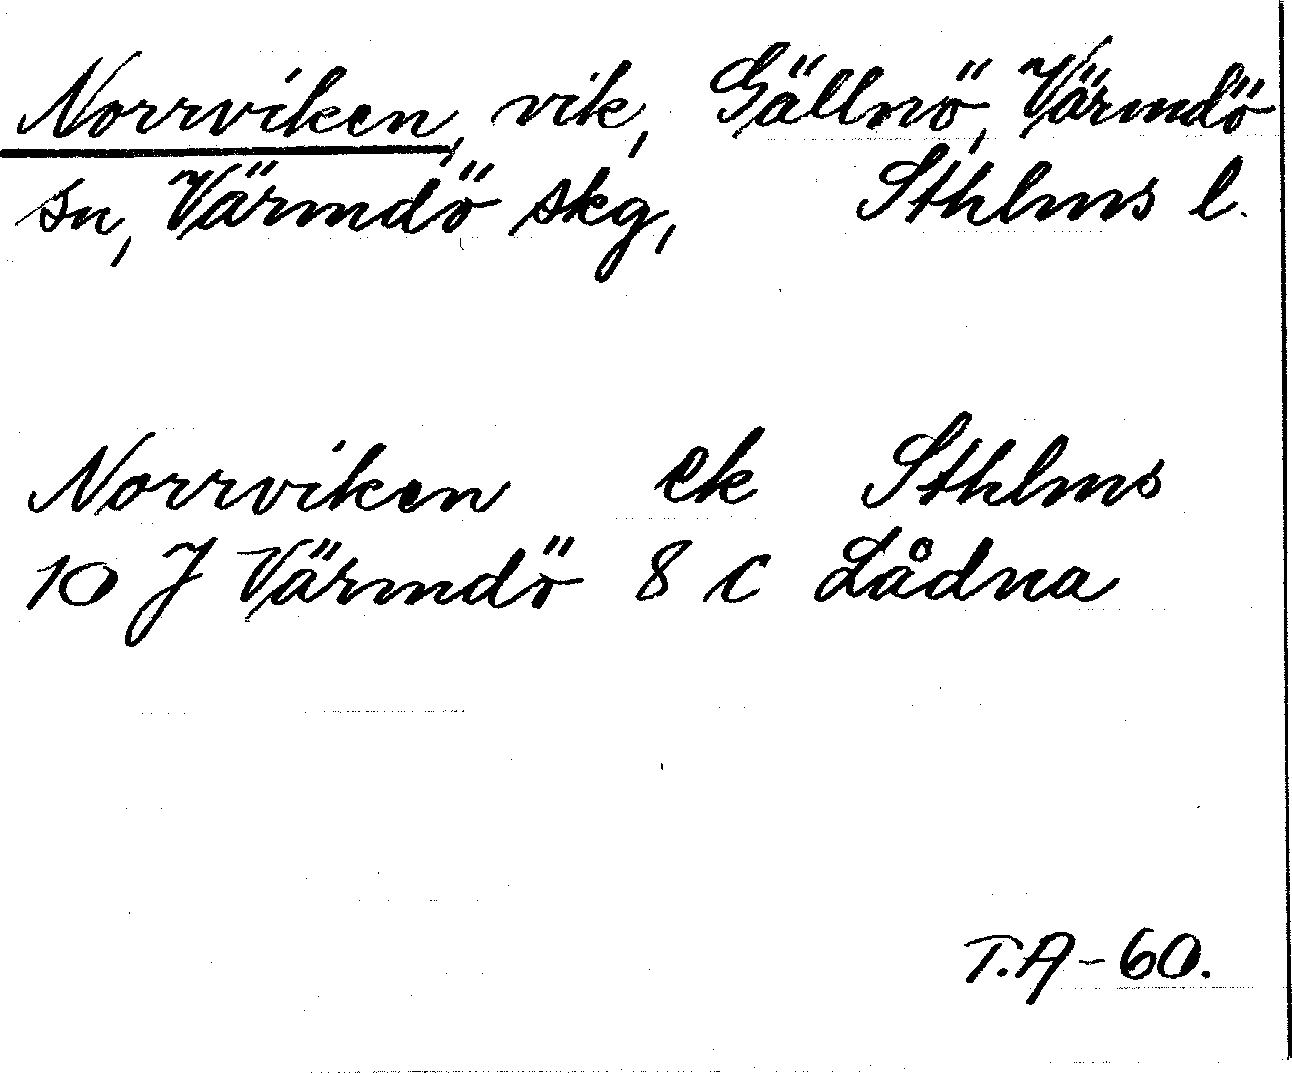 Norrviken, vik, Gällnö, Värmdö
sn, Värmdö skg, Sthlms l.
Norrviken ek Sthlms
10 J Värmdö 8 c Lådna
T.A-60.